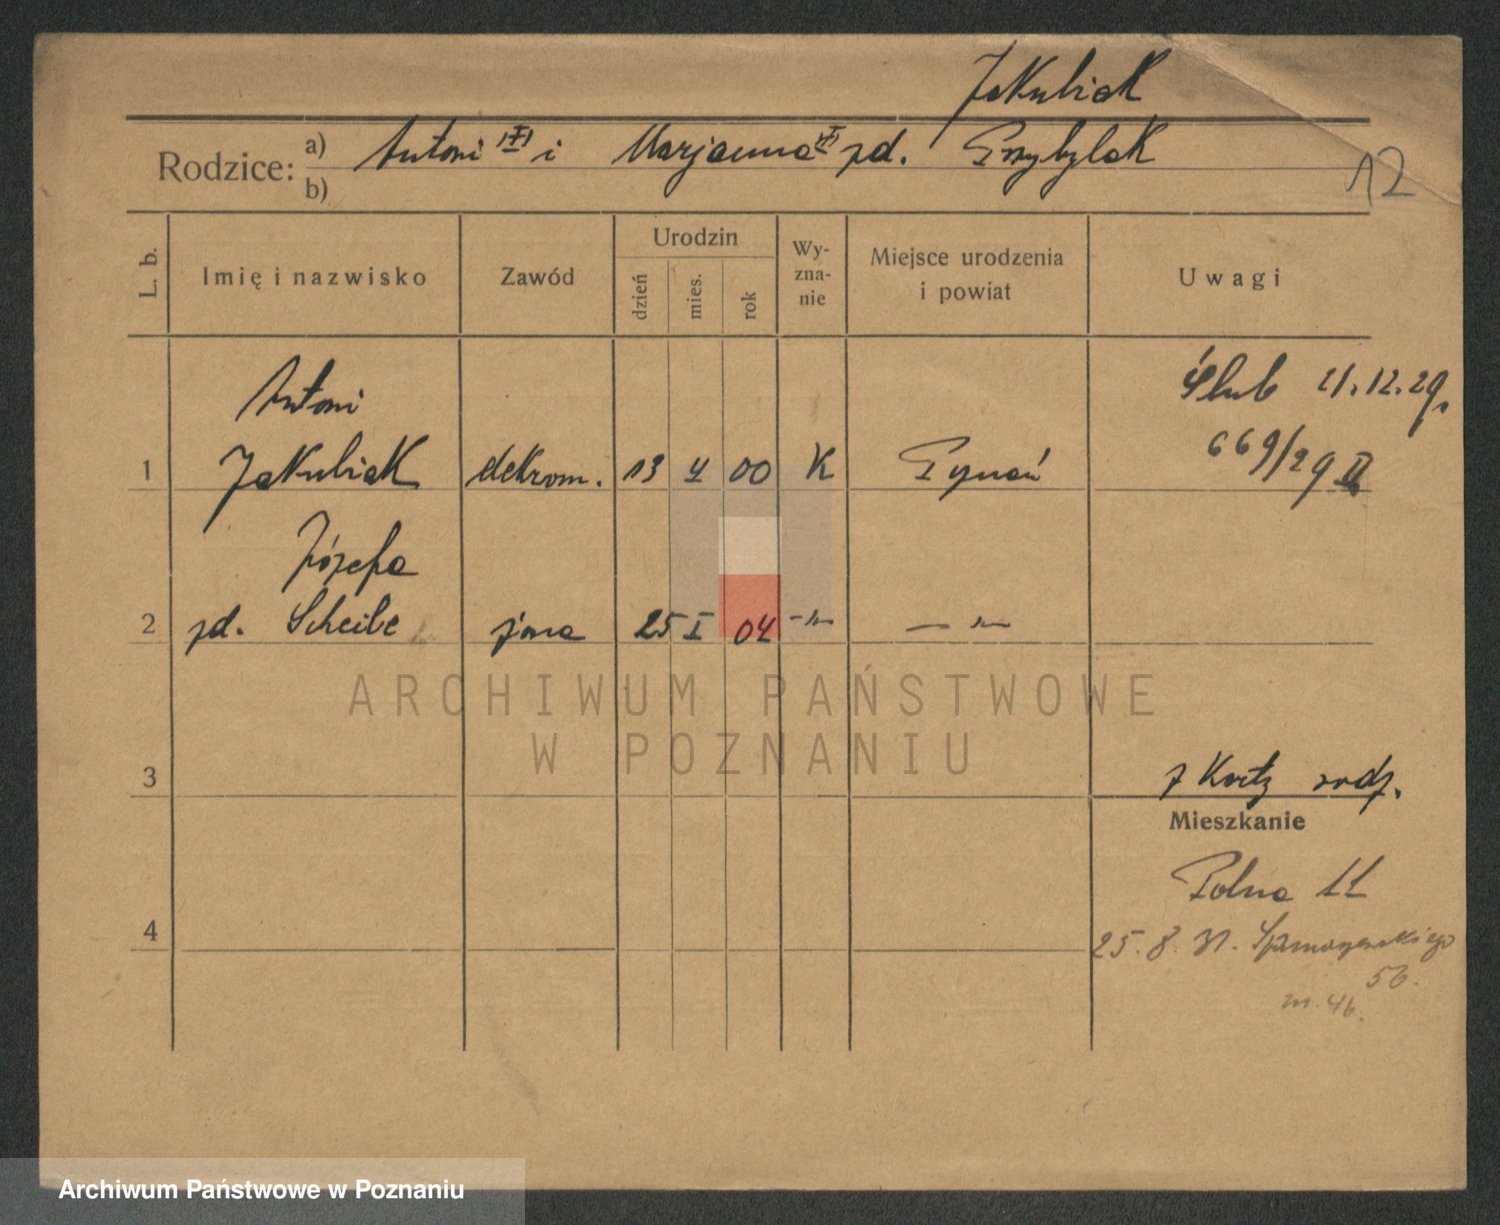 Jakubiak
Rodzice: a) Antoni i Marjanna zd. Przybylak
b)
12
L. b.
Imię i nazwisko
Zawód
Urodzin
dzień
mies.
rok
Wy-
zna-
nie
Miejsce urodzenia
i powiat
Uwagi
Antoni
Ślub 21.12.29r
1 Jakubiak dekrom. 13 V 00 K Poznań
669/29 II
Józefa
2 zd. Scheibe żona 25 I 04 -"- -"-
ARCHIWUM PAŃSTWOWE
W POZNANIU
3
z Karty rodz.
Mieszkanie
Polna 11
4
25. 8. 31.
56.
m. 46.
Archiwum Państwowe w Poznaniu